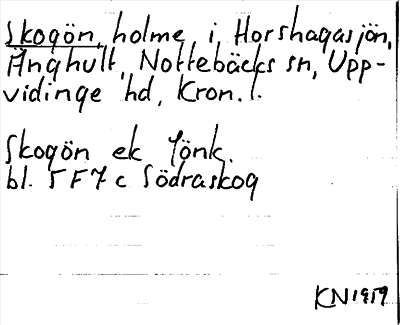 Skogön, holme i Horshagasjön,
Änghult, Nottebäcks sn, Upp-
vidinge hd, Kron. l.
Skogön ek Jönk.
bl. 5 F 7 c Södraskog
KN 1959